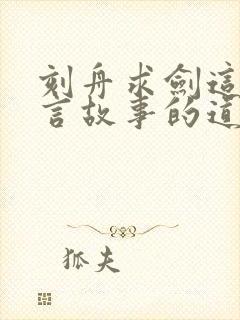 刻舟求劍這
言故事的道
狐夫